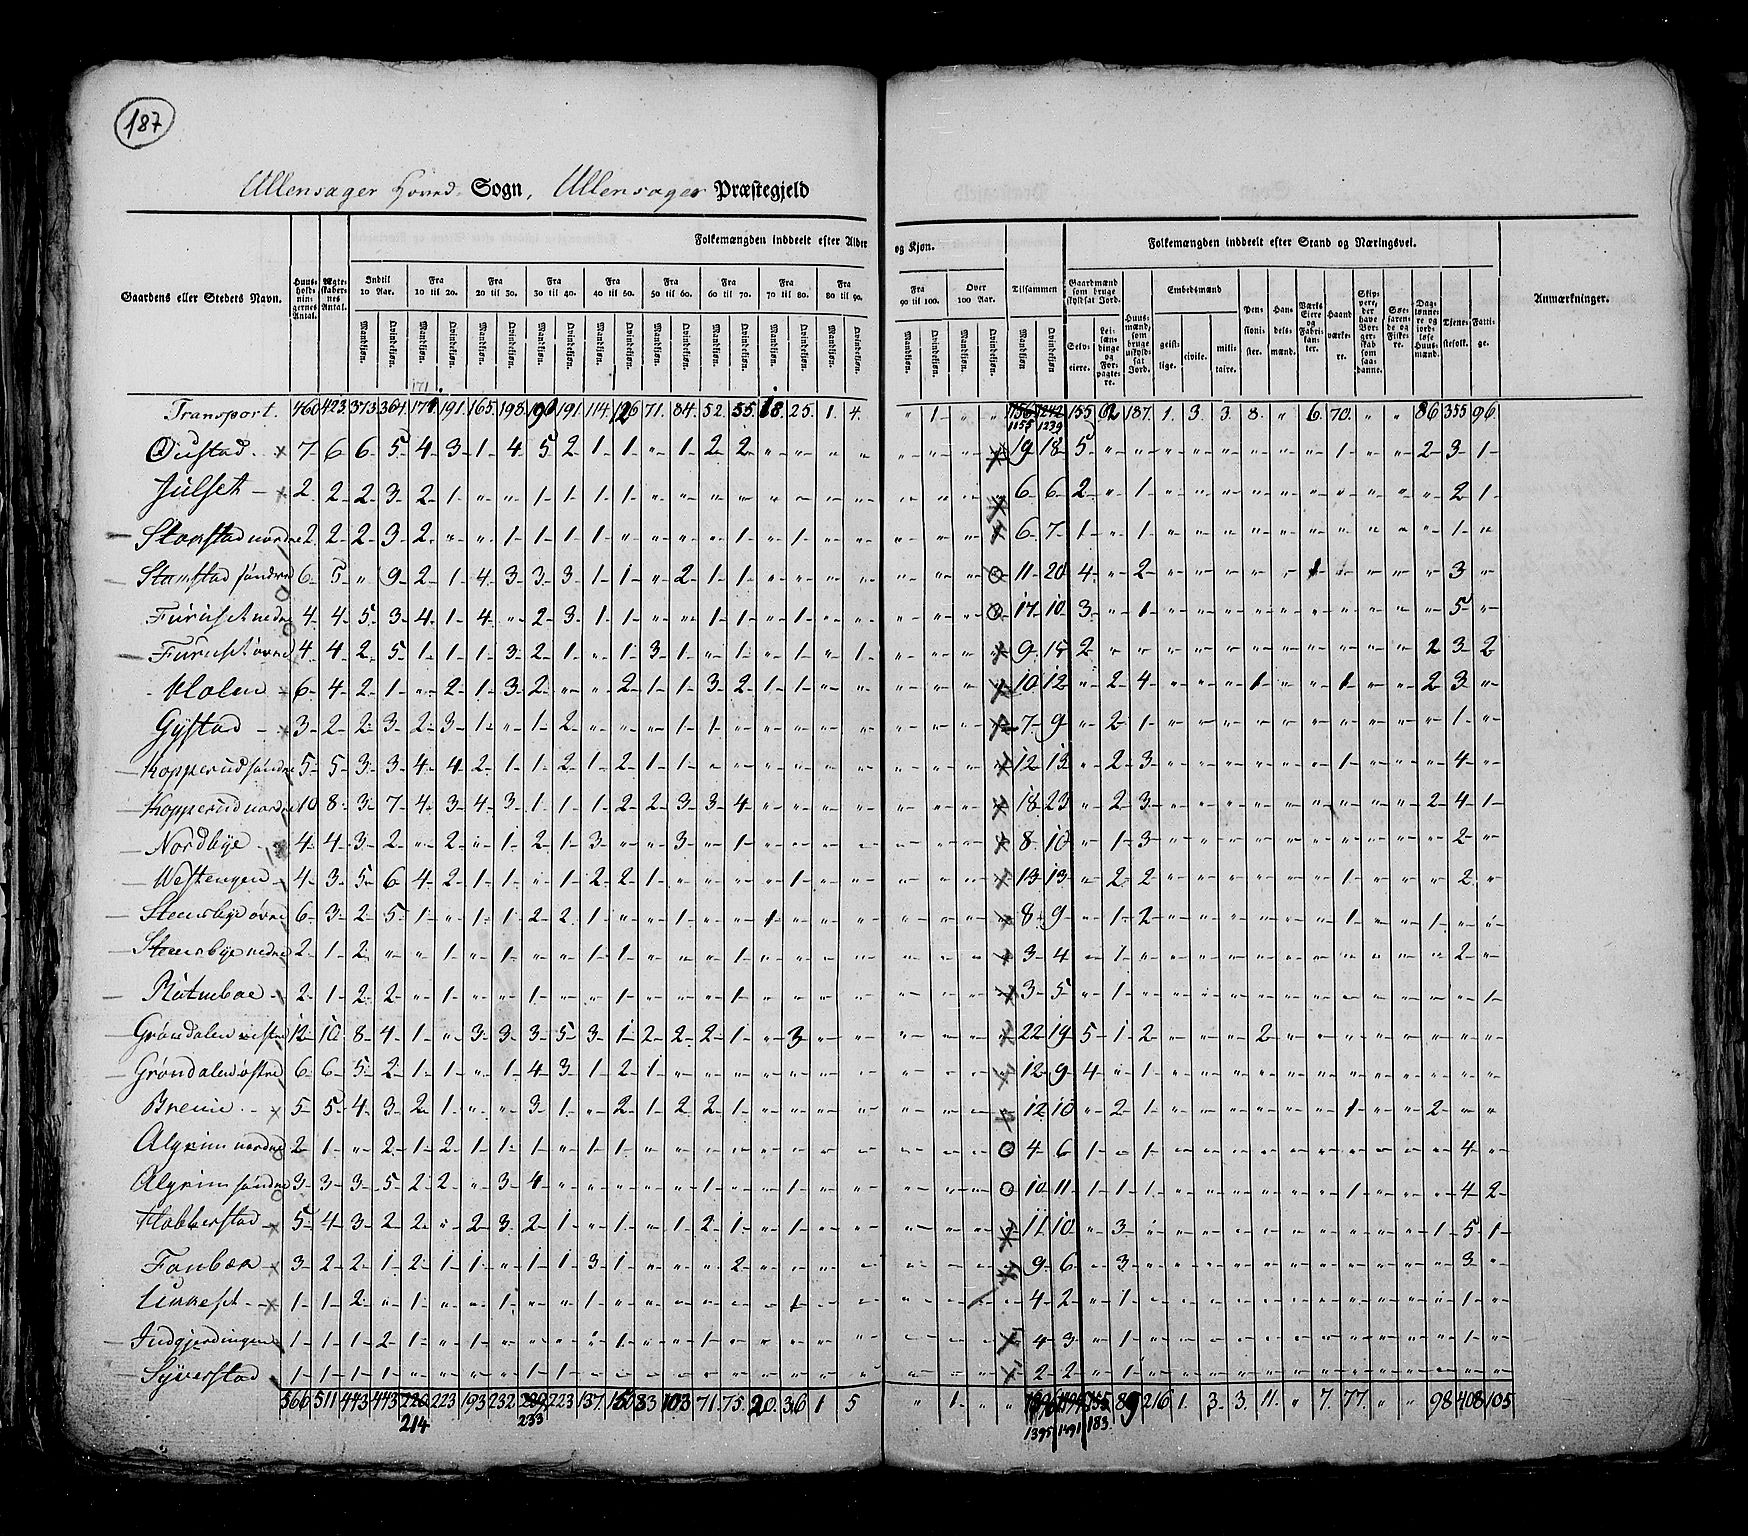 187
Ullensager Hoved Sogn, Ullensager Præstegjeld
Folkemængden inddeelt efter Alder og Kjøn.
Folkemængden inddeelt efter Stand og Næringsvei.
Gaardens eller Stedets Navn.
Huusholdningernes Antal.
Ægteskabernes Antal.
Indtil 10 Aar.
Fra 10 til 20.
Fra 20 til 30.
Fra 30 til 40.
Fra 40 til 50.
Fra 50 til 60.
Fra 60 til 70.
Fra 70 til 80.
Fra 80 til 90.
Fra 90 til 100.
Over 100 Aar.
Tilsammen
Mandkjøn. Qvindekjøn.
Gaardmænd som bruge skyldsat Jord.
Selveiere.
Leilændinge og Forpagtere.
Huusmænd, som bruge uskyldsat Jord.
Embedsmænd
geistlige. civile. militaire.
Pensionister.
Handelsmænd.
Værks Eiere og Fabrikanter.
Haandværkere.
Skippere, der have Borgerskab som saadanne.
Søefarende og Fiskere.
Daglønnere og jordløse Huusmænd.
Tjenestefolk.
Fattige.
Anmærkninger.
Transport. 460 423 373 364 171 191 165 198 196 191 114 126 71 84 52 55 18 25 1 4 " 1 " " 1156 1242 155 62 187 1 3 3 8 " 6 70 " " 86 355 96
1155 1239
Øustad 7 6 6 5 4 3 1 4 5 2 1 1 " 1 2 2 " " " " " " " " 19 18 5 " " " " " " " " 1 " " 2 3 1
Julset 2 2 2 3 2 1 " " 1 1 1 1 " " " " " " " " " " " " 6 6 2 " 1 " " " " " " " " " " 2 1
Stanstad nordre 2 2 2 3 2 " " 1 1 1 1 " " " " 1 " 1 " " " " " " 6 7 1 " 1 " " " " " " " " " " 1 "
Stanstad søndre 6 5 " 9 2 1 4 3 3 3 1 1 " 2 1 1 " " " " " " " " 11 20 4 " 2 " " " " " 1 " " " " 3 "
Furuset nedre 4 4 5 3 4 1 4 " 2 3 1 1 " " 1 1 " 1 " " " " " " 17 10 3 " 1 " " " " " " " " " " 5 "
Furuset øvre 4 4 2 5 1 1 1 3 2 1 " 1 3 1 " 1 " 1 " 1 " " " " 9 15 2 " " " " " " " " " " " 2 3 2
Holen 6 4 2 1 " 2 1 3 2 " " 2 1 1 3 2 1 1 " " " " " " 10 12 " 2 4 " " " 1 " " 1 " " 2 3 "
Gystad 3 2 2 3 2 3 1 " 1 2 " " " 1 1 " " " " " " " " " 7 9 " 2 1 " " " " " " " " " " 1 "
Kopperud søndre 5 5 3 3 4 4 2 1 1 2 1 2 1 1 " " " " " " " " " " 12 13 " 2 3 " " " " " " 1 " " " 4 "
Kopperud nordre 10 8 3 7 4 3 4 3 1 1 1 2 2 3 3 4 " " " " " " " " 18 23 " 2 3 " " " " " " " " " 2 4 1
Nordbye 4 4 3 2 " 2 " 1 2 1 3 " " 3 " 1 " " " " " " " " 8 10 " 1 3 " " " " " " " " " " 2 "
Westengen 4 3 5 6 4 2 1 1 " 1 2 2 1 " " " " 1 " " " " " " 13 13 " 2 2 " " " " " " 1 " " " 2 "
Steensbye øvre 6 3 2 5 1 " 1 1 2 2 1 " " 1 " " 1 " " " " " " " 8 9 " 1 2 " " " " " " 1 " " 1 " "
Steensbye nedre 2 1 2 " " 1 " 1 " 1 " 1 " " 1 " " " " " " " " " 3 4 " 1 " " " " " " " " " " " " 2 "
Rotmboe 2 1 2 2 " 1 " " 1 " " 1 " " " 1 " " " " " " " " 3 5 " 1 " " " " " " " " " " " " 1
Grøndalen vestre 12 10 8 4 1 " 3 3 3 5 3 1 2 2 2 1 " 3 " " " " " " 22 19 5 1 2 " " " 2 " " " " " " " "
Grøndalen østre 6 6 5 2 1 1 " 1 4 3 1 2 1 " " " " " " " " " " " 12 9 4 " 1 " " " " " " " " " " " "
Brenne 5 5 4 3 2 1 " " 3 1 " 2 1 2 2 1 " " " " " " " " 12 10 " 2 1 " " " " " " 1 " " 2 " "
Algrim nordre 2 1 " 2 1 2 1 1 1 " 1 1 " " " " " " " " " " " " 4 6 1 " 1 " " " " " " " " " " 4 "
Algrim søndre 3 3 3 5 2 2 " 3 4 " " " " " " 1 " 1 " " " " " " 10 11 1 1 1 " " " " " " 1 " " " 4 2
Habberstad 5 4 3 2 2 " 2 3 2 1 " 1 " 1 2 1 " 1 " " " " " " 11 10 " 3 " " " " " " " " " " 1 5 1
Fonbæk 3 2 2 1 2 1 1 " 1 1 3 1 " " " 2 " " " " " " " " 9 6 " 3 " " " " " " " " " " " 3 "
1 1 2 " 1 " " 1 " " " " " " " " " 1 " " " " " " 4 2 " 1 " " " " " " " " " " " 1 "
Indgjerdingen 1 1 1 2 1 " " " " " " 1 " " 1 " " " " " " " " " 4 3 " 1 " " " " " " " " " " " 1 "
Syverstad 1 1 1 1 " " " " 1 1 " " " " " " " " " " " " " " 2 2 " 1 " " " " " " " " " " " " "
566 511 443 443 226 223 193 232 289 223 137 150 83 103 71 75 20 36 1 5 " 1 " " 89 216 1 3 3 11 " 7 77 " " 98 408 105
214 233 1395 1491 183